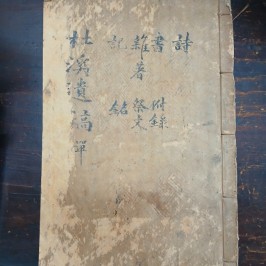 詩
書 附錄
雜著 祭文
記 銘
杜溪遺稿 單